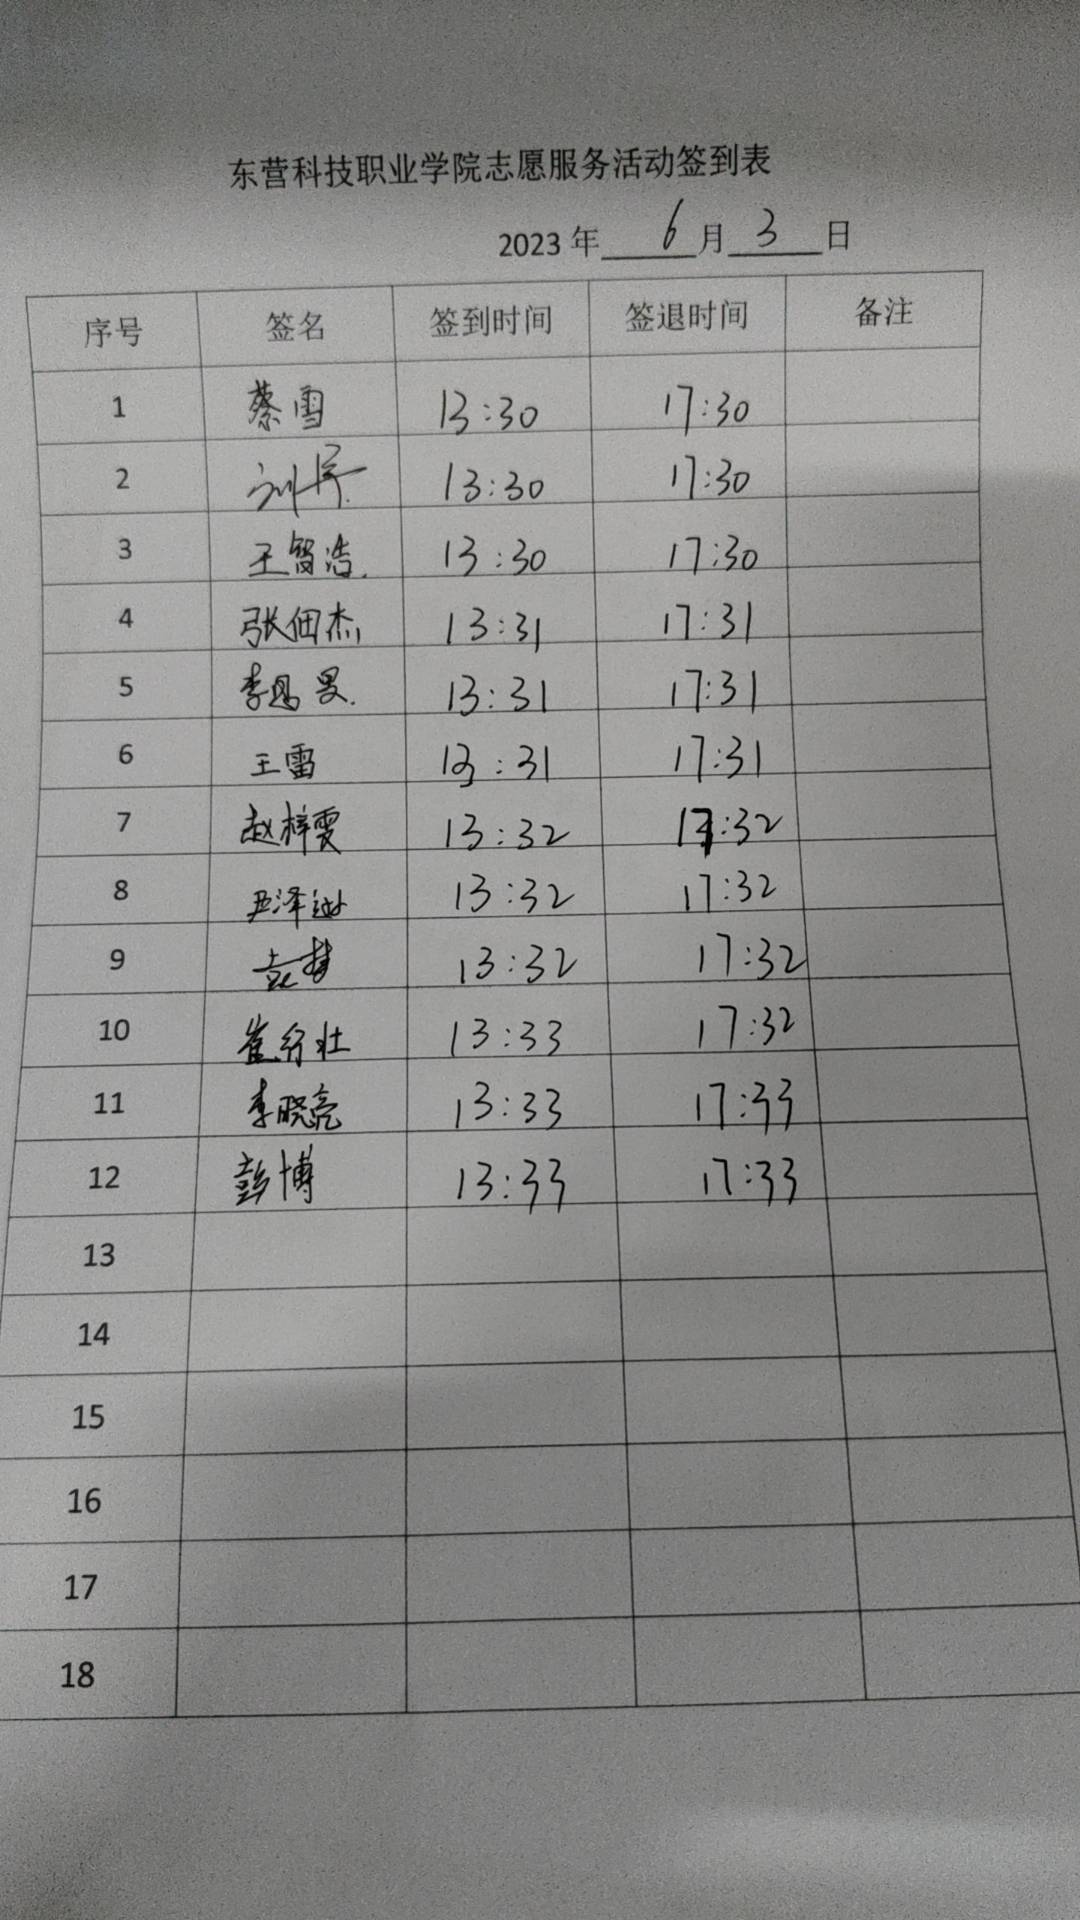 东营科技职业学院志愿服务活动签到表
2023 年 6 月 3 日
序号 签名 签到时间 签退时间 备注
1 蔡雪 13:30 17:30
2 刘 13:30 17:30
3 王智浩 13:30 17:30
4 张佃杰 13:31 17:31
5 李 13:31 17:31
6 王雷 13:31 17:31
7 赵梓雯 13:32 17:32
8 泽 13:32 17:32
9 13:32 17:32
10 崔行壮 13:33 17:32
11 李晓亮 13:33 17:33
12 彭博 13:33 17:33
13
14
15
16
17
18